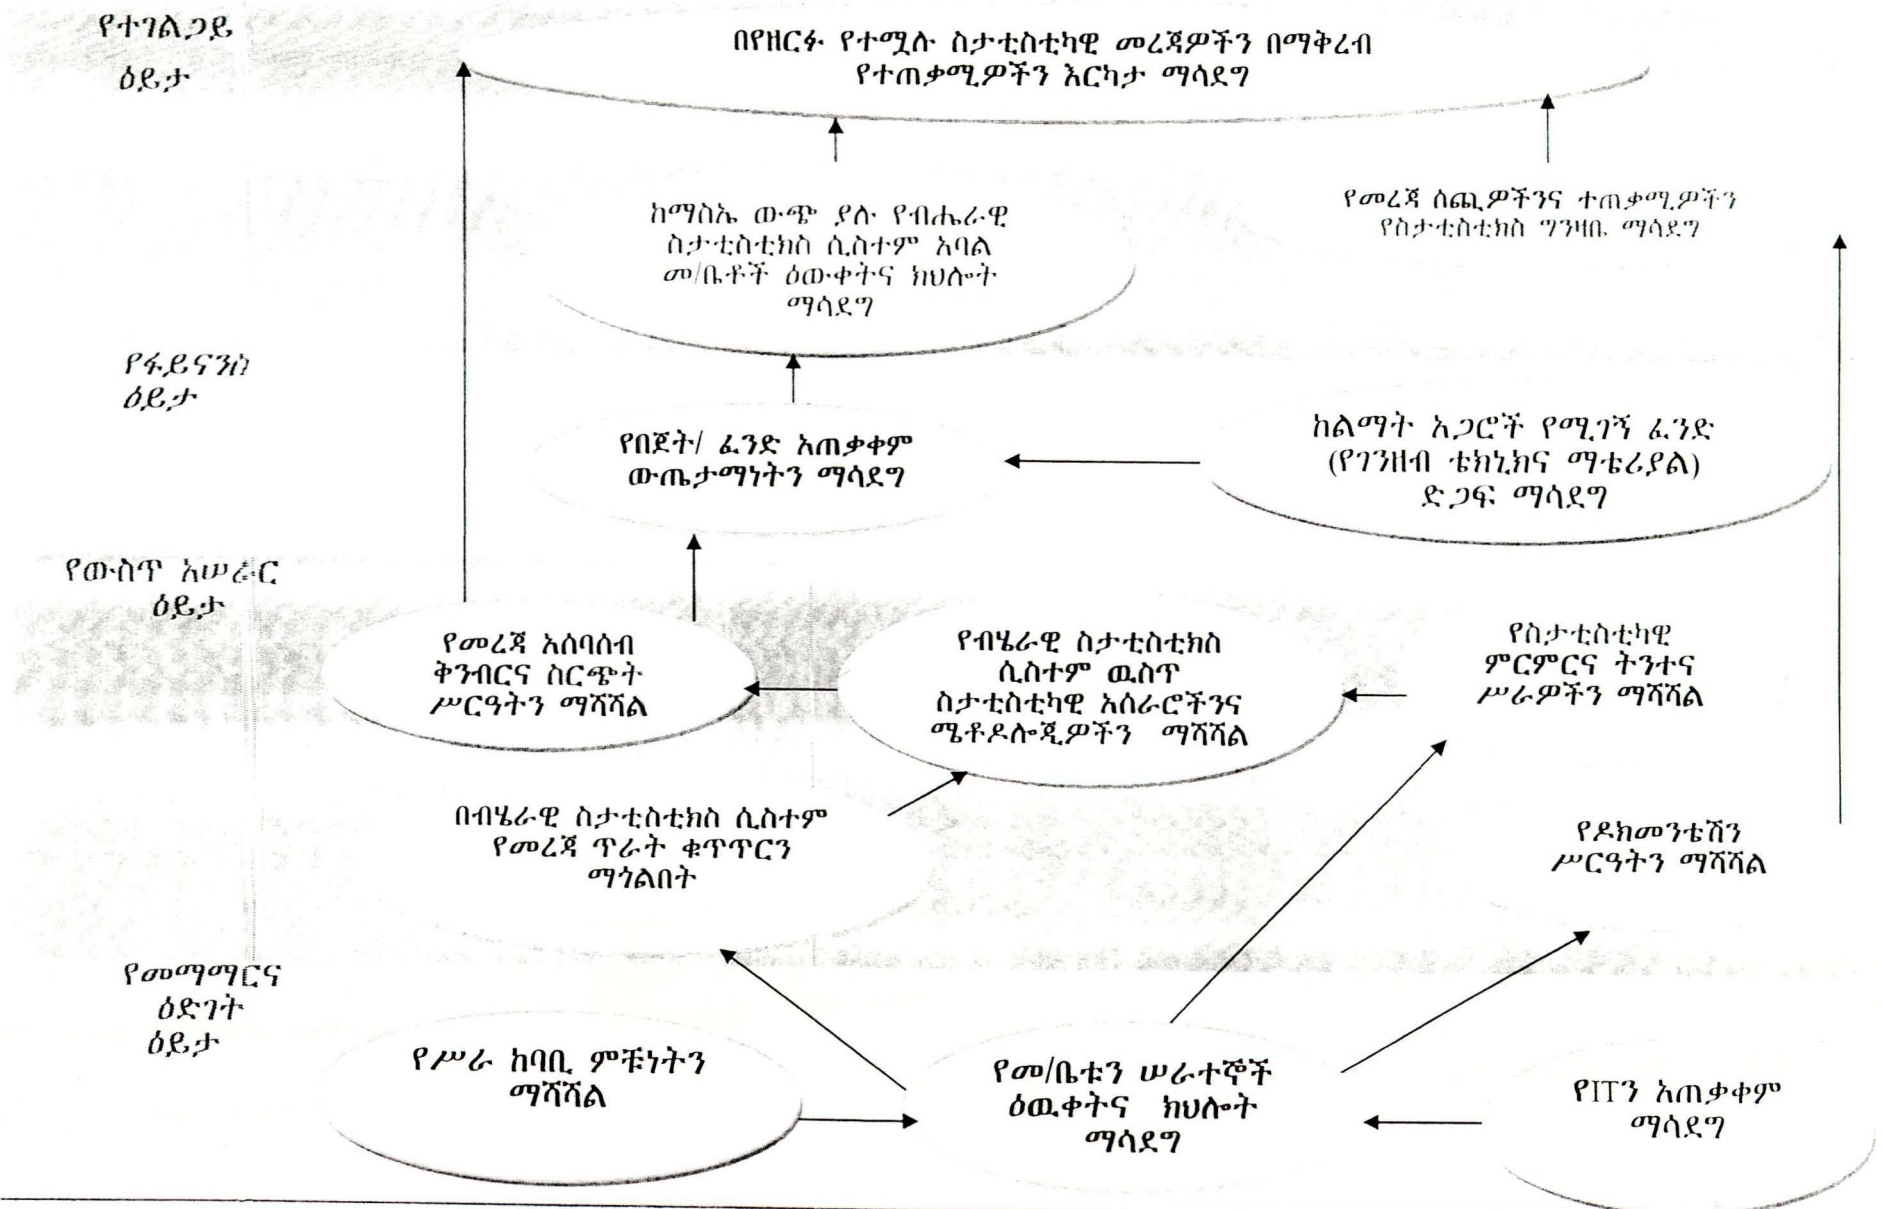 የተገልጋይ
ዕይታ
በየዘርፉ የተሟሉ ስታቲስቲካዊ መረጃዎችን በማቅረብ
የተጠቃሚዎችን እርካታ ማሳደግ
ከማስኤ ውጭ ያሉ የብሔራዊ
ስታቲስቲክስ ሲስተም አባል
መ/ቤቶች ዕውቀትና ክህሎት
ማሳደግ
የመረጃ ሰጪዎችንና ተጠቃሚዎችን
የስታቲስቲክስ ግንዛቤ ማሳደግ
የፋይናንስ
ዕይታ
የበጀት/ ፈንድ አጠቃቀም
ውጤታማነትን ማሳደግ
ከልማት አጋሮች የሚገኝ ፈንድ
(የገንዘብ ቴክኒክና ማቴሪያል)
ድጋፍ ማሳደግ
የውስጥ አሠራር
ዕይታ
የመረጃ አሰባሰብ
ቅንብርና ስርጭት
ሥርዓትን ማሻሻል
የብሄራዊ ስታቲስቲክስ
ሲስተም ዉስጥ
ስታቲስቲካዊ አሰራሮችንና
ሜቶዶሎጂዎችን ማሻሻል
የስታቲስቲካዊ
ምርምርና ትንተና
ሥራዎችን ማሻሻል
በብሄራዊ ስታስቲክስ ሲስተም
የመረጃ ጥራት ቁጥጥርን
ማጎልበት
የዶክመንቴሽን
ሥርዓትን ማሻሻል
የመማማርና
ዕድገት
ዕይታ
የሥራ ከባቢ ምቹነትን
ማሻሻል
የመ/ቤቱን ሠራተኞች
ዕዉቀትና ክህሎት
ማሳደግ
የITን አጠቃቀም
ማሳደግ